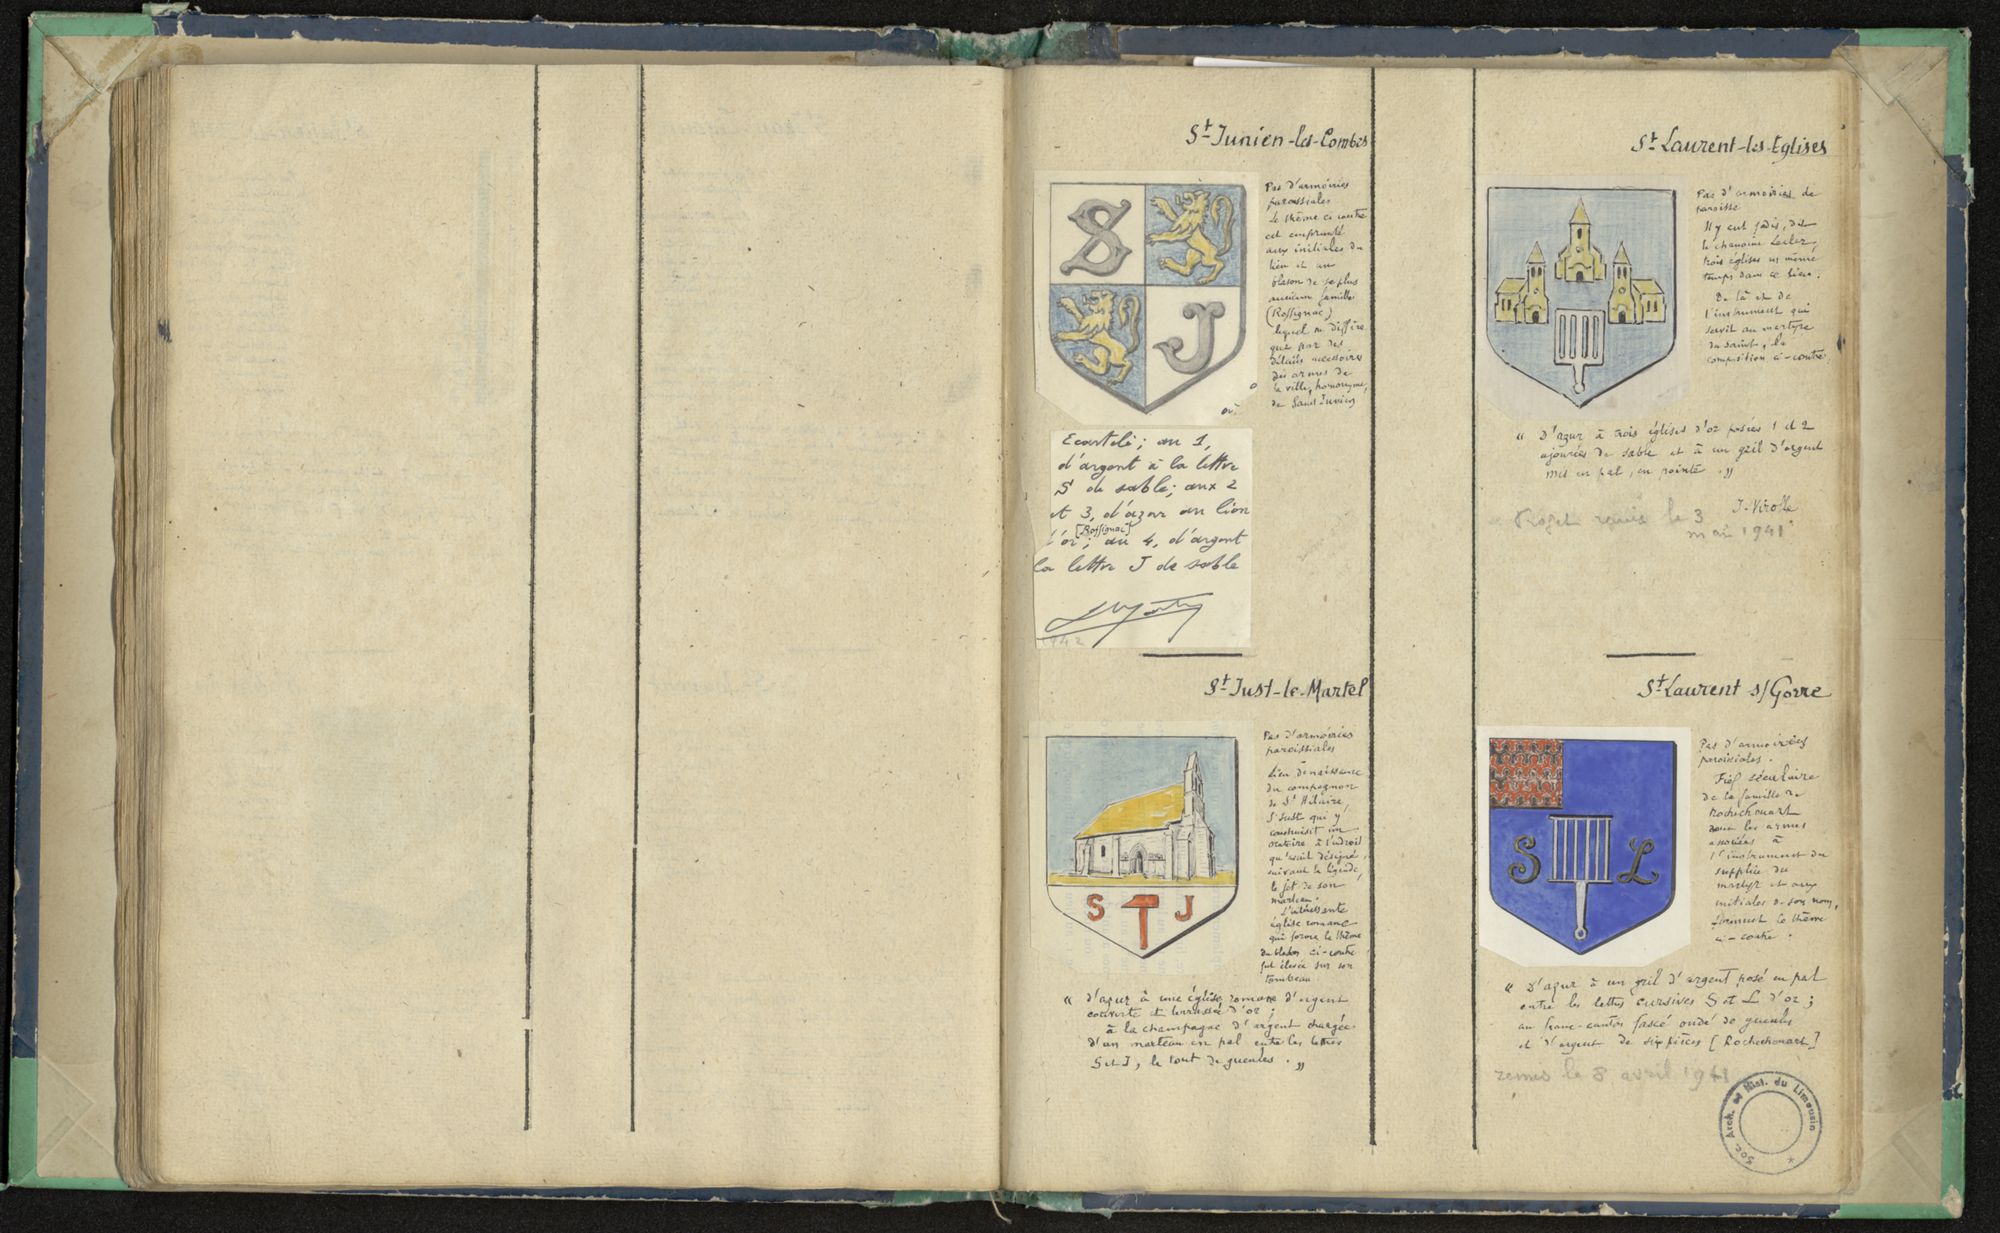 St Junien-les-Combes
S
J
Pas d'armoiries
paroissiales
Le thème ci contre
est emprunté
aux initiales du
lieu et au
blason de sa plus
ancienne famille
(Rossignac)
lequel ne diffère
que par des
détails accessoires
des armes de
la ville, homonyme,
de Saint Junien
Ecartelé; au 1,
d'argent à la lettre
S de sable; aux 2
et 3, d'azur au lion
[Rossignac]
d'or; au 4, d'argent
la lettre J de sable
1942
St Just-le-Martel
S J
Pas d'armoiries
paroissiales
Lieu de naissance
du compagnon
de St Hilaire,
S. Just qui y
construisit un
oratoire à l'endroit
qu'avait désigné,
suivant la légende,
le jet de son
marteau.
L'intéressante
église romane
qui forme le thème
du blason ci-contre
fut élevée sur son
tombeau
« d'azur à une église romane d'argent
couverte et terrassée d'or ;
à la champagne d'argent chargée
d'un marteau en pal entre les lettres
S et J, le tout de gueules . »
St Laurent-les-Eglises
Pas d'armoiries de
paroisse
Il y eut jadis, dit
le chanoine Leclerc,
trois églises en même
temps dans ce lieu :
De là et de
l'instrument qui
servit au martyre
du saint, la
composition ci-contre.
« D'azur à trois églises d'or posées 1 et 2
ajourées de sable et à un gril d'argent
mis en pal, en pointe . »
J. Virolle
Projet remis le 3
mai 1941
St Laurent s/Gorre
S L
Pas d'armoiries
paroissiales.
Fief séculaire
de la famille de
Rochechouart
dont les armes
associées à
l'instrument du
supplice du
martyr et aux
initiales de son nom,
forment le thème
ci-contre.
« D'azur à un gril d'argent posé en pal
entre les lettres cursives S et L d'or ;
au franc-canton fascé ondé de gueules
et d'argent de six pièces [Rochechouart]
remis le 8 avril 1941
Soc. Arch. et Hist. du Limousin